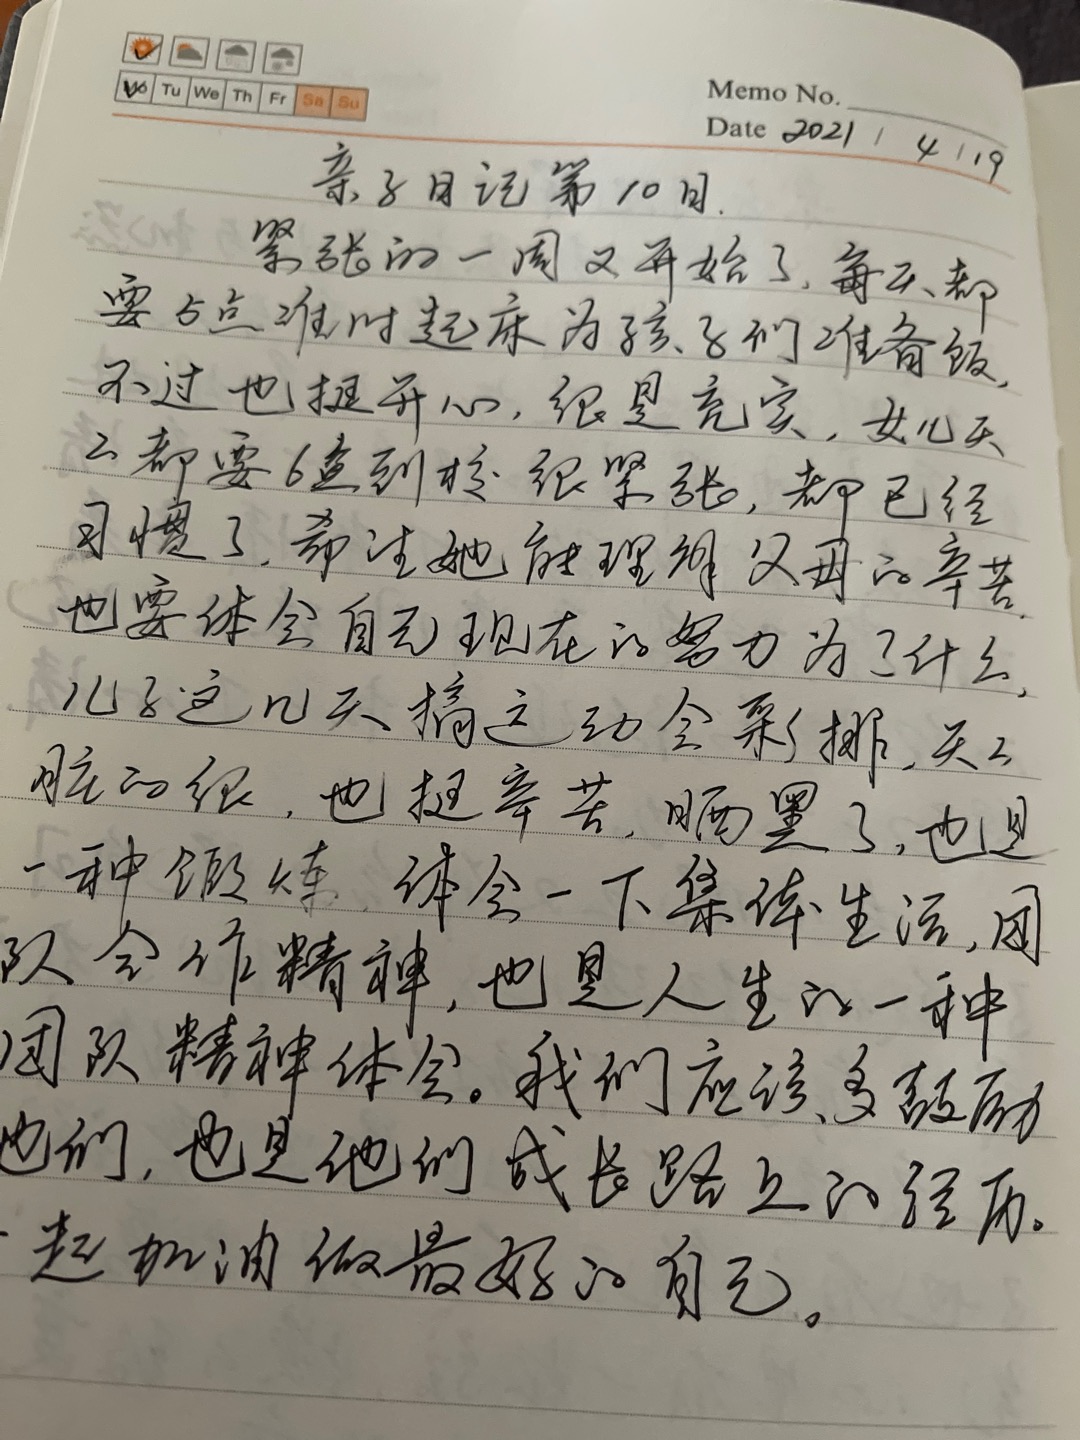 Mo Tu We Th Fr Sa Su
Memo No.
Date 2021 / 4 / 19
亲子日记第10日.
紧张的一周又开始了,每天都
要5点准时起床为孩子们准备饭,
不过也挺开心,很是充实,女儿天
天都要6点到校很紧张,都已经
习惯了,希望她能理解父母的辛苦,
也要体会自己现在的努力为了什么,
儿子这几天搞运动会彩排,天天
脏的很,也挺辛苦,晒黑了,也是
一种锻炼,体会一下集体生活,团
队合作精神,也是人生的一种
团队精神体会。我们应该多鼓励
他们,也是他们成长路上的经历。
一起加油做最好的自己。